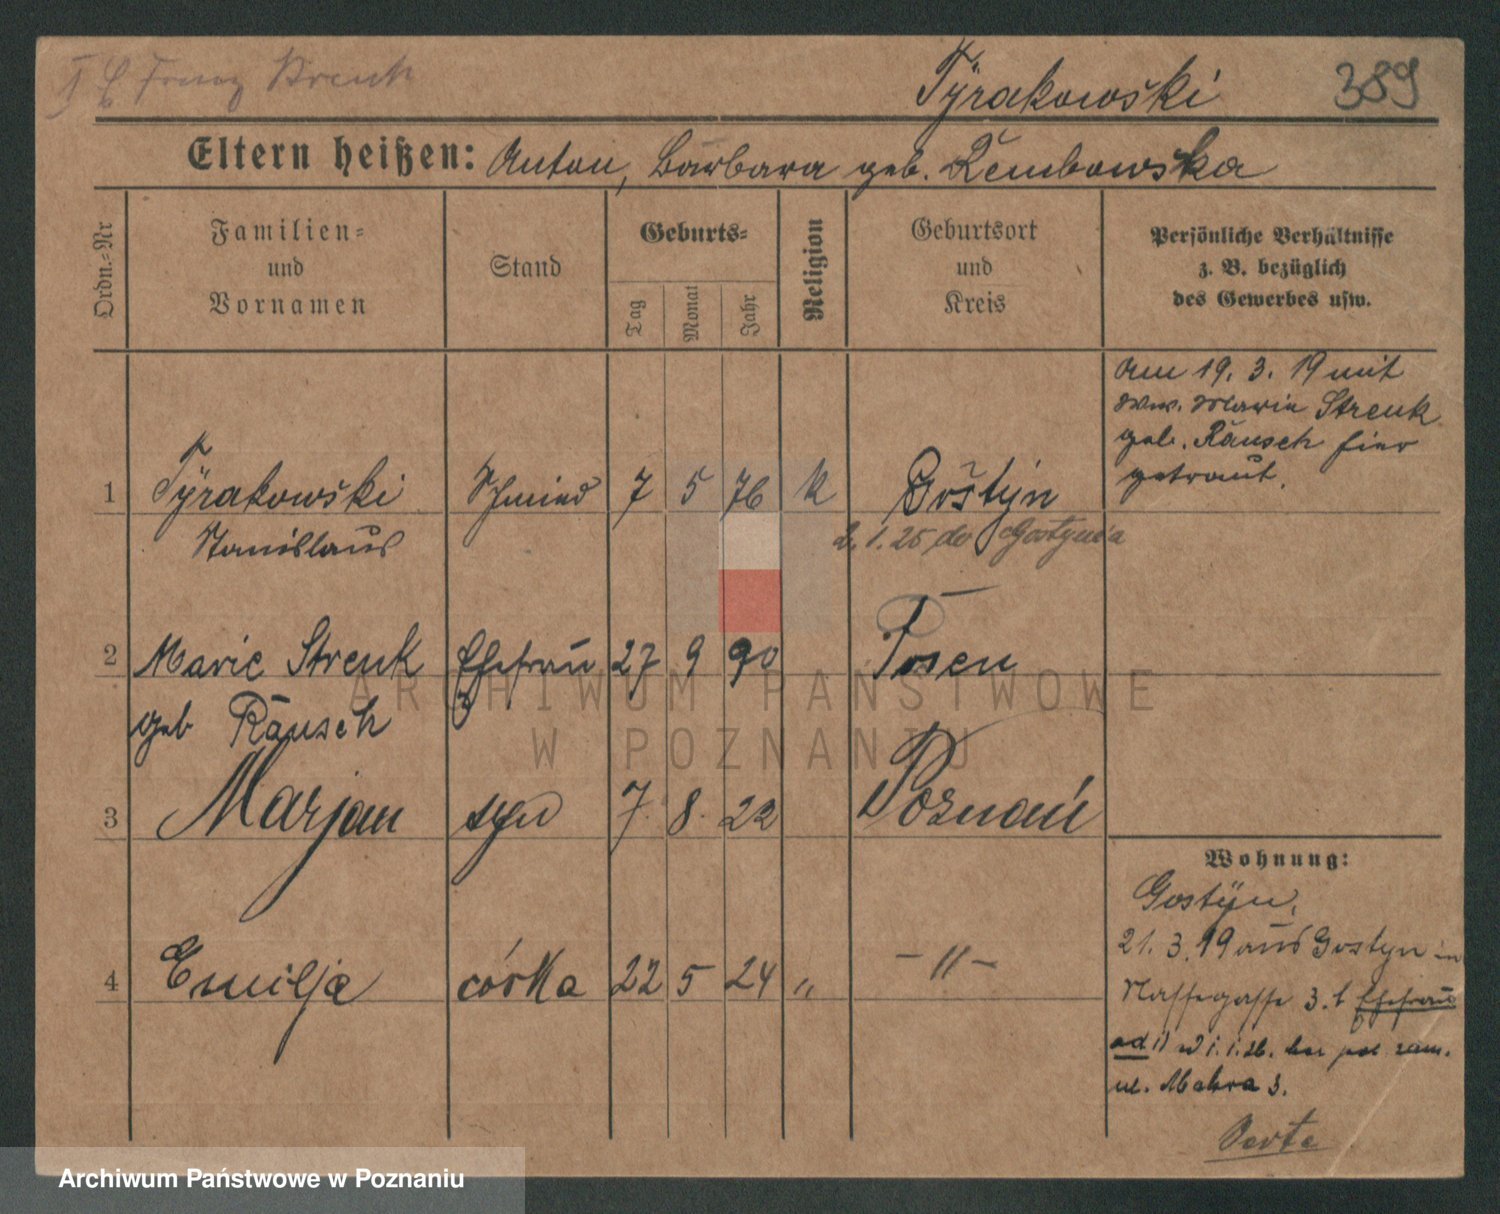 Franz Strenk
Tÿrakowski 389
Eltern heißen: Anton, Barbara geb. Zembowska
Ordn.=Nr
Familien=
und
Vornamen
Stand
Geburts=
Tag
Monat
Jahr
Religion
Geburtsort
und
Kreis
Persönliche Verhältnisse
z. B. bezüglich
des Gewerbes usw.
1 Tÿrakowski Schmied 7 5 76 k Gostÿn
Stanislaus
2. 1. 25 do Gostynia
Am 19. 3. 19 mit
Ww. Marie Strenk
geb. Räusch hier
getraut.
2 Marie Strenk Ehefrau 27 9 90 Posen
geb Räusch
3 Marjan syn 7. 8. 22 Poznań
4 Emilja córka 22 5 24 " -"-
Wohnung:
Gostÿn,
21. 3. 19 aus Gostyn in
Nassegasse 3. b Ehefrau
ad 1) 1. 1. 26. zam.
ul. Mokra 3.
ARCHIWUM PAŃSTWOWE
W POZNANIU
Archiwum Państwowe w Poznaniu